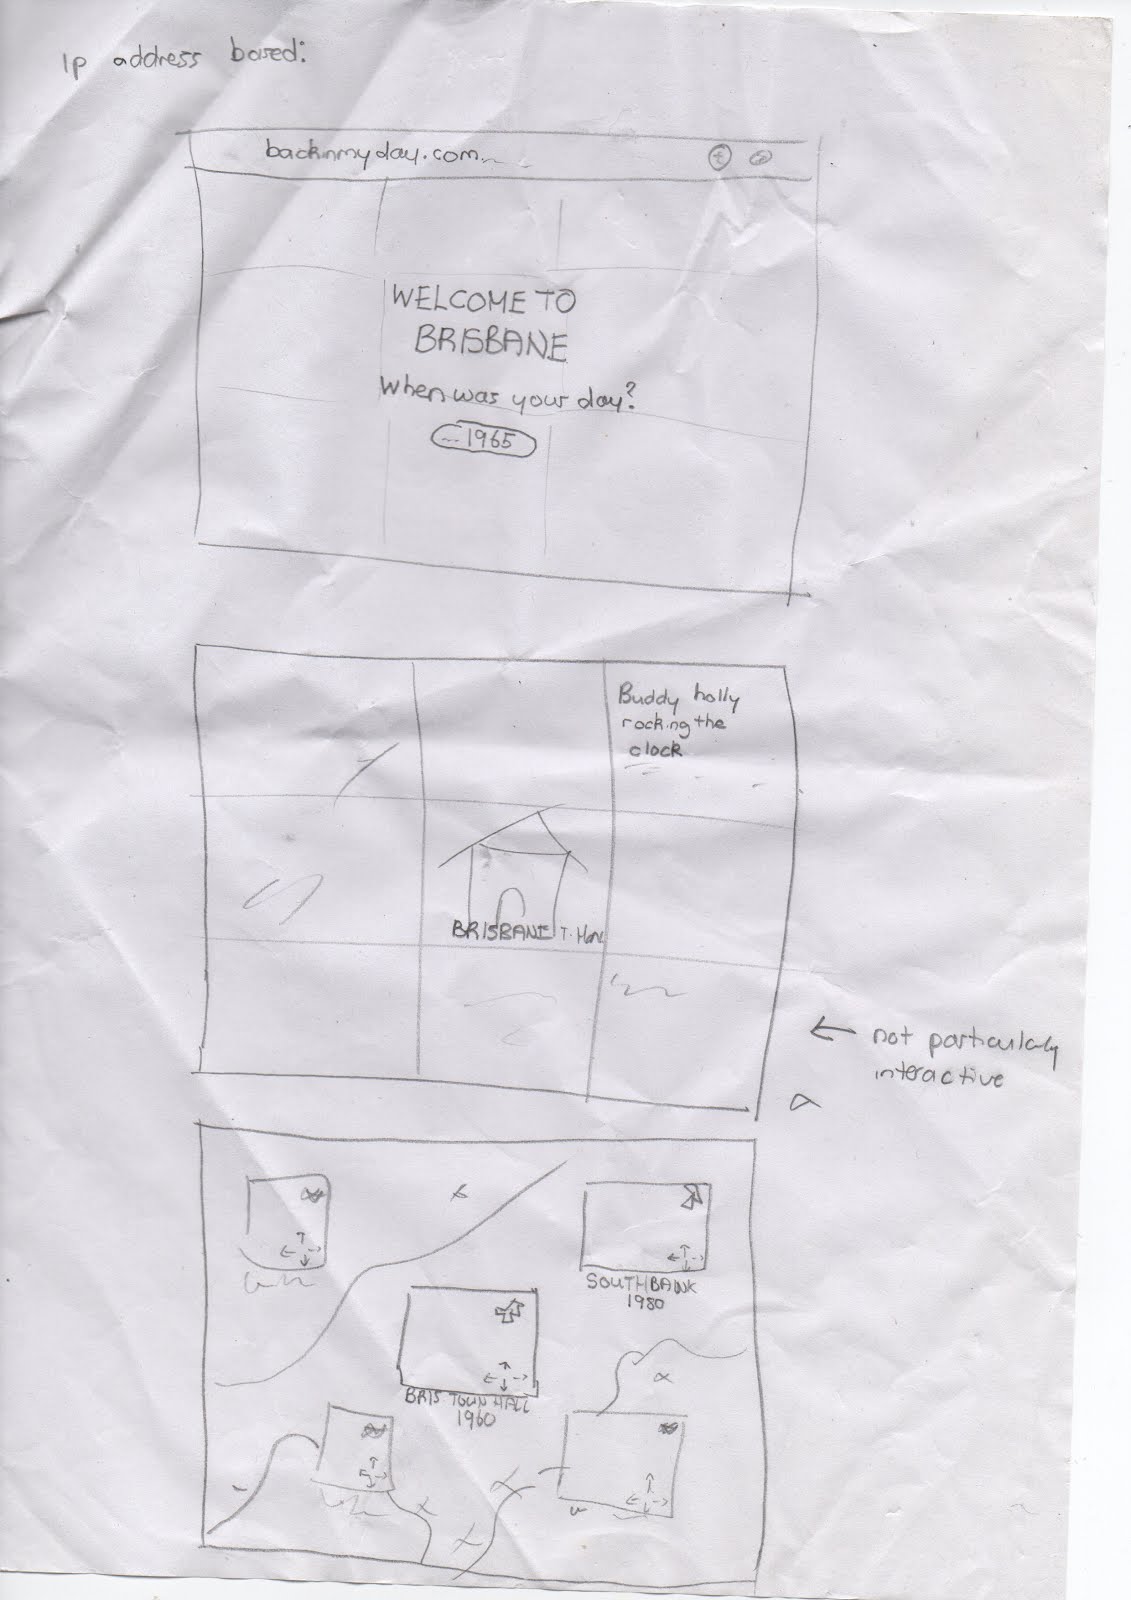 ip address based:
backinmyday.com
WELCOME TO
BRISBANE
When was your day?
1965
Buddy holly
rocking the
clock
BRISBANE T. HALL
← not particularly
interactive
SOUTHBANK
1980
BRIS TOWN HALL
1960